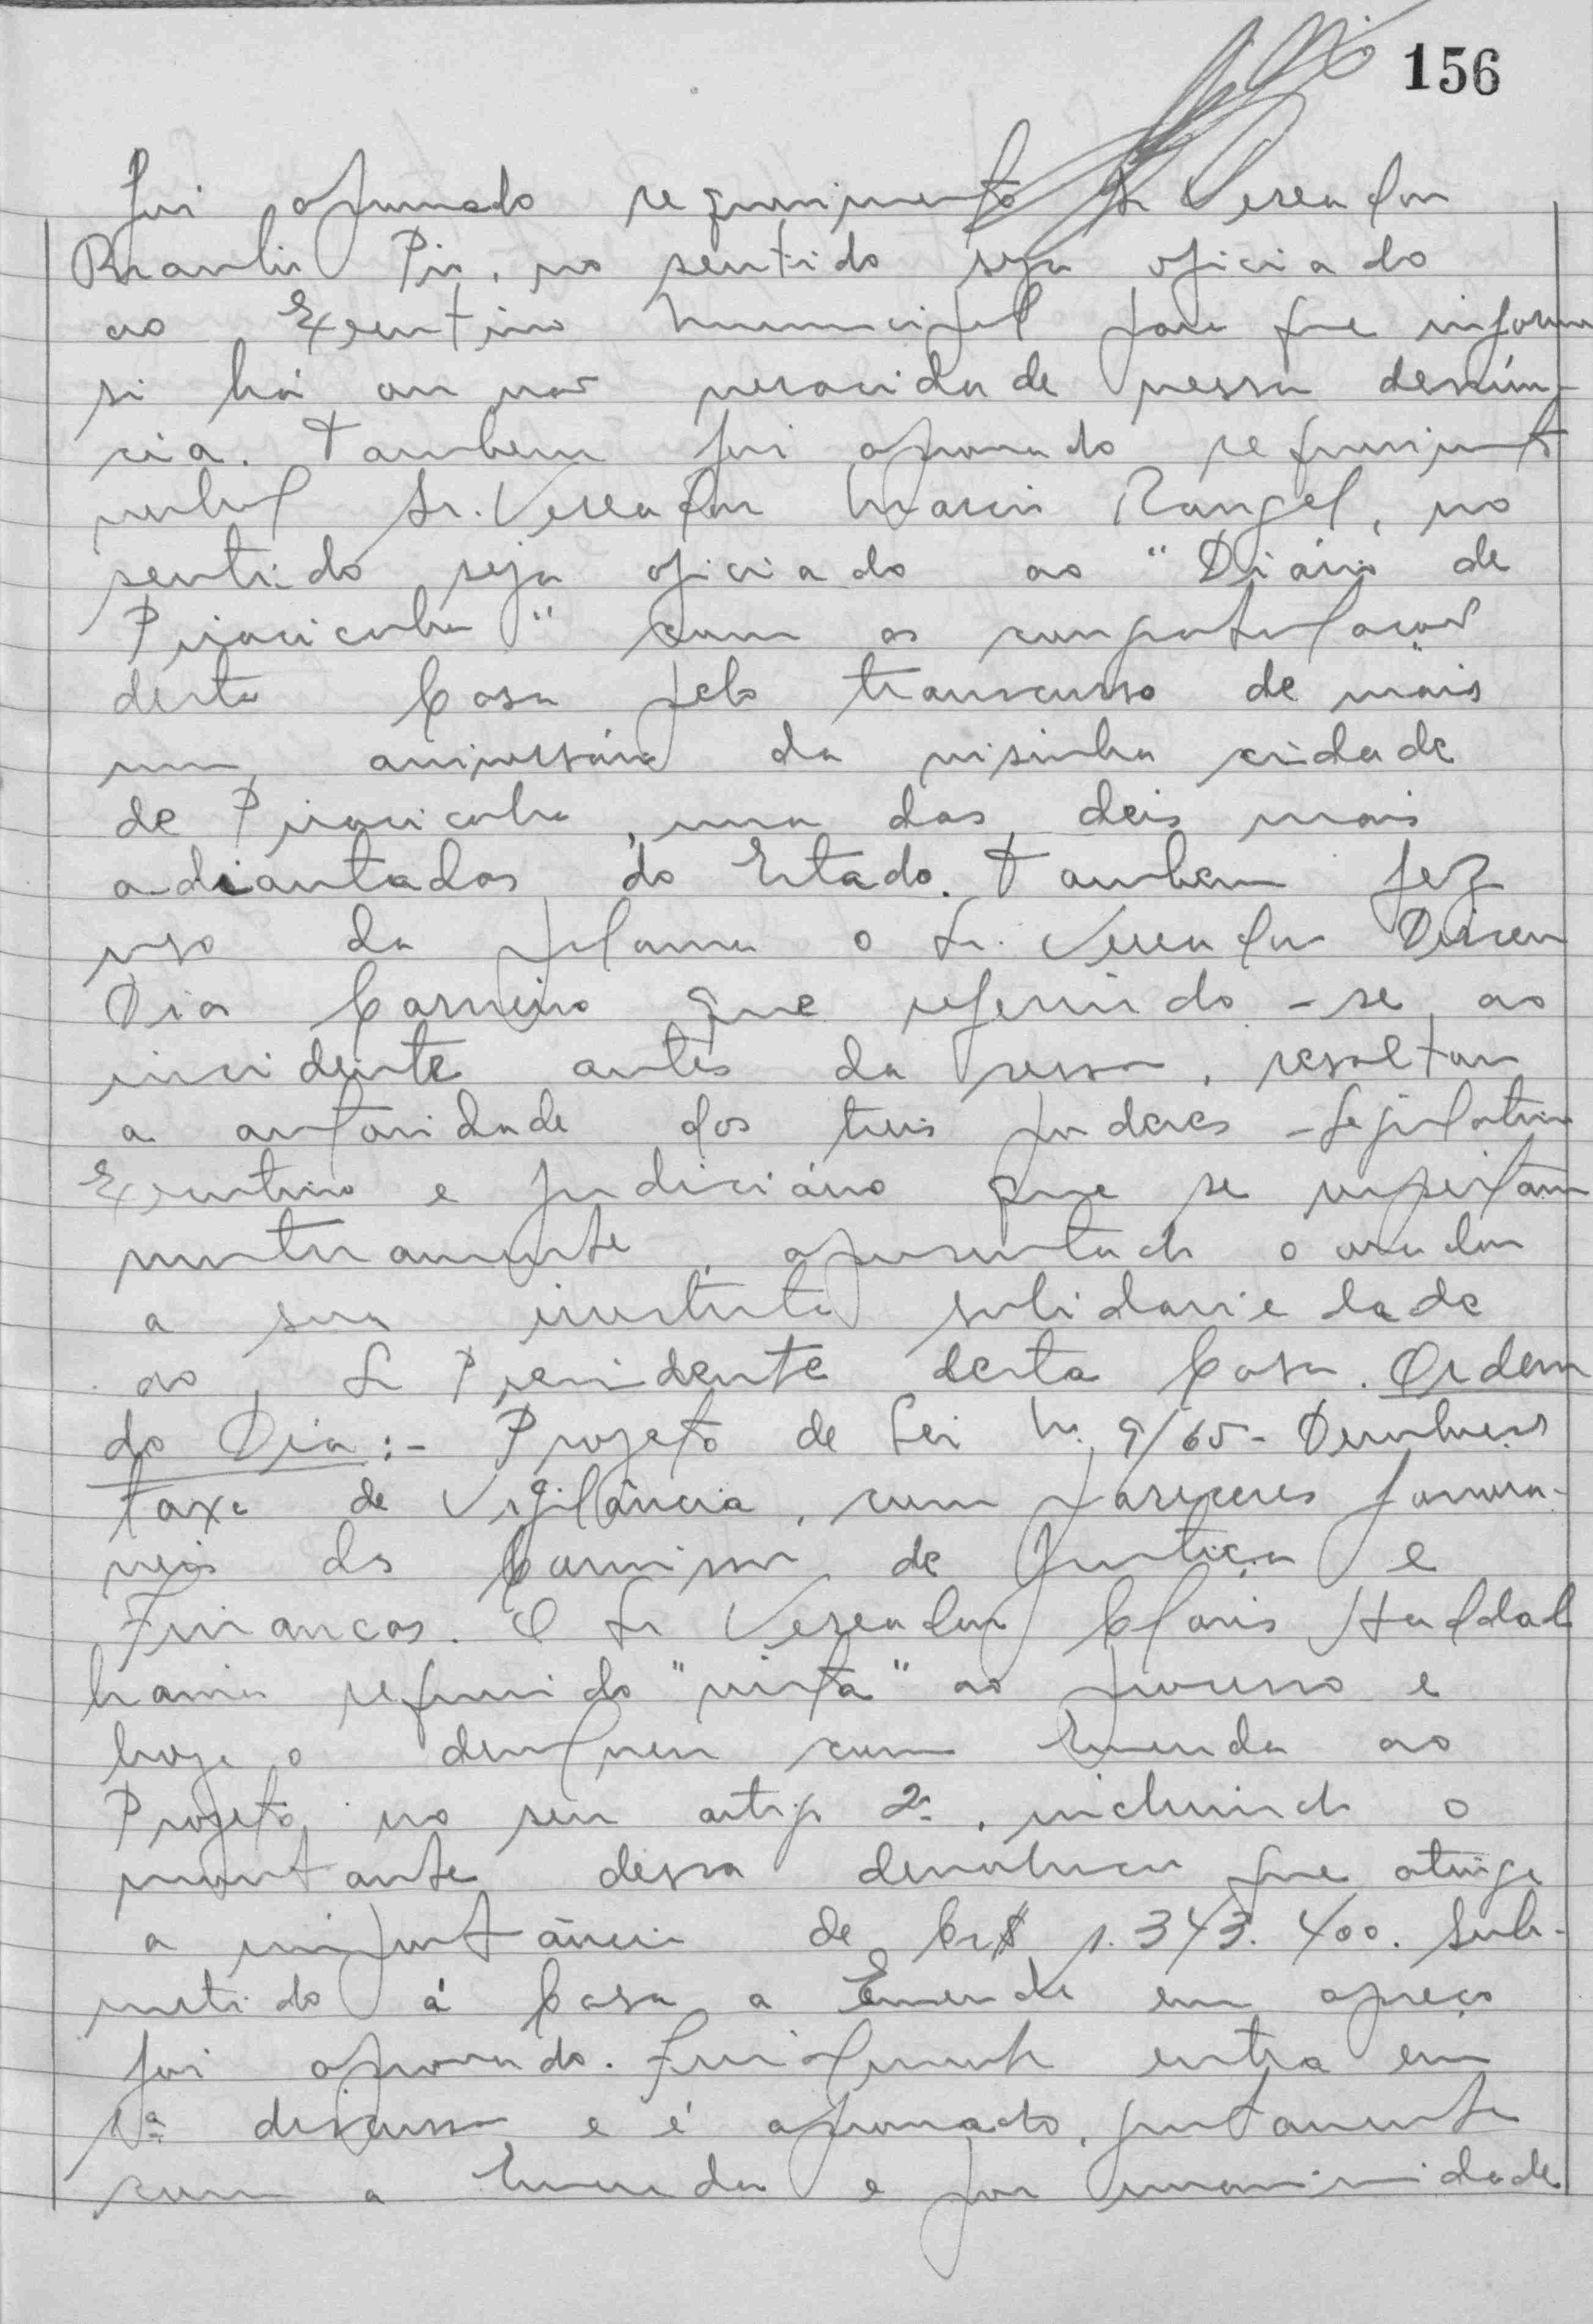 156
foi aprovado requerimento Sr Vereador
Braulio Pio, no sentido seja oficiado
ao Executivo Municipal para que informe
si há ou não veracidade nessa denún-
cia. Tambem foi aprovado requerimento
verbal Sr. Vereador Marcio Rangel, no
sentido seja oficiado ao "Diário de
Piracicaba" com as congratulações
desta Casa pelo transcurso de mais
um aniversário da visinha cidade
de Piracicaba, uma das deis mais
adiantadas do Estado. Tambem fez
uso da palavra o Sr. Vereador Dirceu
Dias Carneiro que referindo-se ao
incidente antes da sessão, resaltou
a autoridade dos treis poderes - Legislativo
Executivo e Judiciário que se respeitam
mutuamente, apresentado o orador
a sua irrestrita solidariedade
ao Sr Presidente desta Casa. Ordem
do Dia:- Projeto de Lei Nº 9/65- Devolvers
taxa de Vigilância, com pareceres favora-
veis da Comissão de Justiça e
Financas. O Sr Vereador Clovis Haddad
havia requerido "vista" ao processo e
hoje o devolveu com Emenda ao
Projeto, no seu artigo 2º, incluindo o
montante dessa devolucão que atinge
a importância de Cr$ 1.343.400. Sub-
metido á Casa a Emenda em apreço
foi aprovado. Finalmente entra em
1ª discussão e é aprovado, juntamente
com a Emenda e por unanimidade